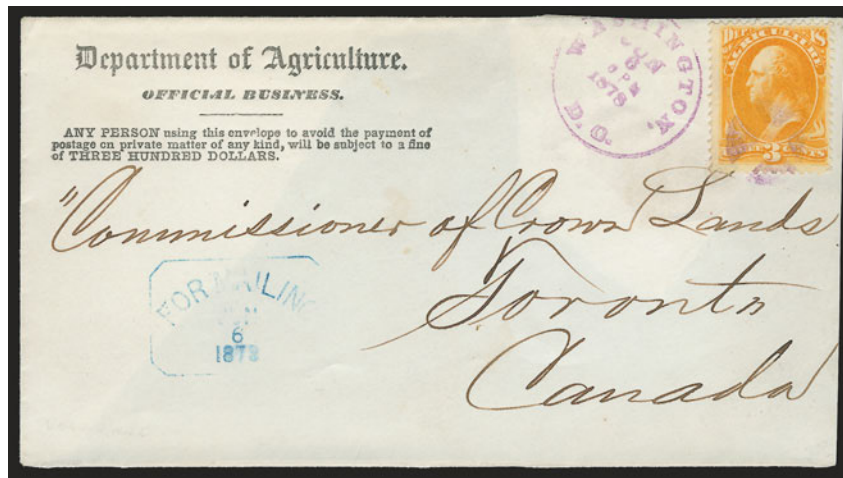 Department of Agriculture.
OFFICIAL BUSINESS.
ANY PERSON using this envelope to avoid the payment of
postage on private matter of any kind, will be subject to a fine
of THREE HUNDRED DOLLARS.
WASHINGTON,
JUN
6
6 PM
1878
D.C.
AGRICULTURE
3 CENTS
"Commissioner of Crown Lands
Toronto
Canada
FOR MAILING
JUN
6
1878